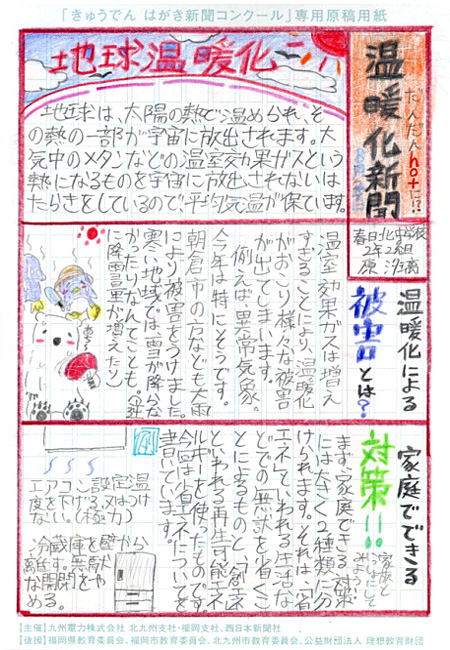 「きゅうでん はがき新聞コンクール」専用原稿用紙
だんだんhotに!?
温暖化新聞
春日北中学校
2年2組
地球温暖化
地球は、太陽の熱で温められ、そ
の熱の一部が宇宙に放出されます。大
気中のメタンなどの温室効果ガスという
熱になるものを宇宙に放出されないは
たらきをしているので、平均気温が保ています。
温暖化による
被害とは?
温室効果ガスは増え
すぎることにより、温暖化
がおこり様々な被害
が出てしまいます。
例えば、異常気象。
今年は特にそうです。
朝倉市の方なども大雨
により被害をうけました。
寒い地域では雪が降らな
かったりなんてことも。(逆
に降雪量が増えたり)
あち〜
家庭でできる
対策!!
家族と
いっしょにして
みよう!
まず、家庭でできる対策
には大きく2種類に分
けられます。それは「省
エネ」といわれる生活な
どでの無駄を省くこ
とによるものと「創エネ」
といわれる再生可能エネ
ルギーを使ったものです。
今回は省エネについてを
書いています。
例
エアコン設定温
度を下げる、又はつけ
ない。(極力)
冷蔵庫を壁から
離す。無駄
な開閉をや
める。
【主催】九州電力株式会社 北九州支社・福岡支社、西日本新聞社
【後援】福岡県教育委員会、福岡市教育委員会、北九州市教育委員会、公益財団法人 理想教育財団